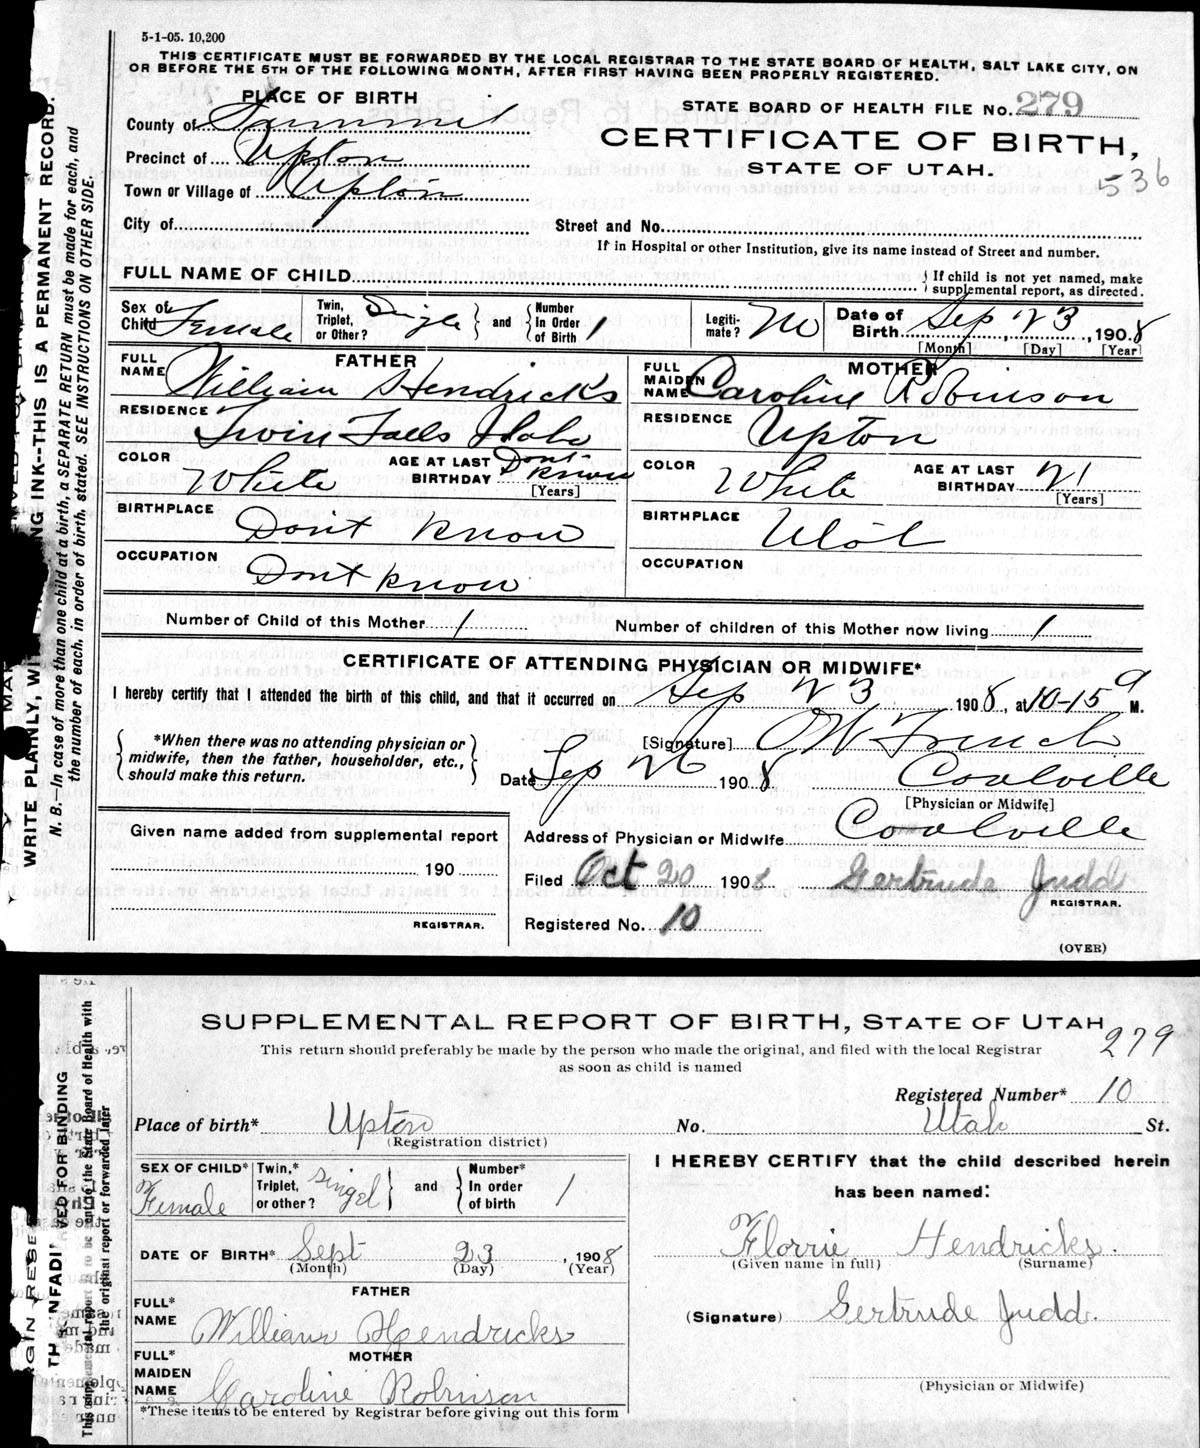 5-1-05. 10,200
THIS CERTIFICATE MUST BE FORWARDED BY THE LOCAL REGISTRAR TO THE STATE BOARD OF HEALTH, SALT LAKE CITY, ON
OR BEFORE THE 5TH OF THE FOLLOWING MONTH, AFTER FIRST HAVING BEEN PROPERLY REGISTERED.
PLACE OF BIRTH
STATE BOARD OF HEALTH FILE No. 279
County of Summit
CERTIFICATE OF BIRTH,
Precinct of Upton
STATE OF UTAH.
536
Town or Village of Upton
City of
Street and No.
If in Hospital or other Institution, give its name instead of Street and number.
FULL NAME OF CHILD
{ If child is not yet named, make
supplemental report, as directed.
Sex of Child Female Twin, Triplet, or Other? Single } and { Number In Order of Birth 1 Legiti-mate? No Date of Birth Sep 23, 1908
[Month] [Day] [Year]
FATHER
FULL NAME William Hendricks
MOTHER
FULL MAIDEN NAME Caroline Robinson
RESIDENCE Twin Falls Idaho
RESIDENCE Upton
COLOR White AGE AT LAST BIRTHDAY Dont know
[Years]
COLOR White AGE AT LAST BIRTHDAY 21
[Years]
BIRTHPLACE Don't know
BIRTHPLACE Utah
OCCUPATION Dont know
OCCUPATION
Number of Child of this Mother 1 Number of children of this Mother now living 1
CERTIFICATE OF ATTENDING PHYSICIAN OR MIDWIFE*
I hereby certify that I attended the birth of this child, and that it occurred on Sep 23 1908, at 10-15 a M.
{ *When there was no attending physician or
midwife, then the father, householder, etc.,
should make this return. }
[Signature] O W French
Date Sep 26 1908 Coalville
[Physician or Midwife]
Given name added from supplemental report
Address of Physician or Midwife Coalville
190
Filed Oct 20 1908 Gertrude Judd
REGISTRAR.
REGISTRAR.
Registered No. 10
(OVER)
WRITE PLAINLY, INK--THIS IS A PERMANENT RECORD.
N. B.—In case of more than one child at a birth, a SEPARATE RETURN must be made for each, and
the number of each, in order of birth, stated. SEE INSTRUCTIONS ON OTHER SIDE.
SUPPLEMENTAL REPORT OF BIRTH, STATE OF UTAH
279
This return should preferably be made by the person who made the original, and filed with the local Registrar
as soon as child is named
Registered Number* 10
Place of birth* Upton No. Utah St.
(Registration district)
SEX OF CHILD* Female Twin,* Triplet, or other? Singel } and { Number* In order of birth 1
I HEREBY CERTIFY that the child described herein
has been named:
DATE OF BIRTH* Sept 23, 1908
(Month) (Day) (Year)
Florrie Hendricks.
(Given name in full) (Surname)
FATHER
FULL* NAME William Hendricks
(Signature) Gertrude Judd.
MOTHER
FULL* MAIDEN NAME Caroline Robinson
(Physician or Midwife)
*These items to be entered by Registrar before giving out this form
VED FOR BINDING
the original report or forwarded later